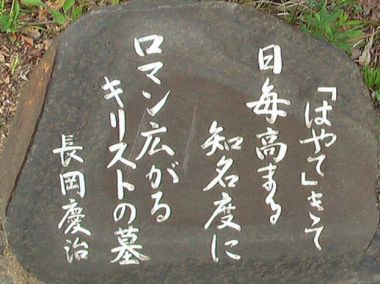 「はやて」きて
日毎高まる
知名度に
ロマン広がる
キリストの墓
長岡慶治